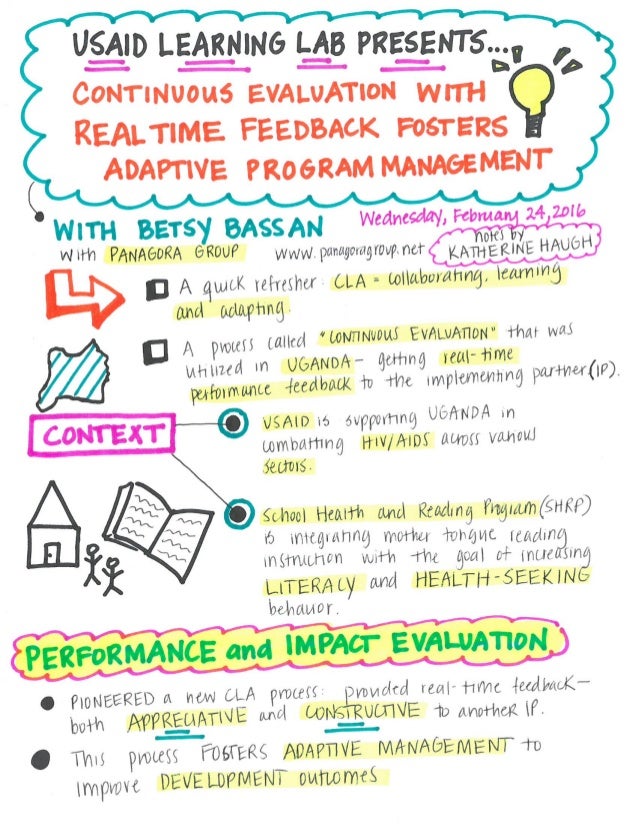 USAID LEARNING LAB PRESENTS...
CONTINUOUS EVALUATION WITH
REAL TIME FEEDBACK FOSTERS
ADAPTIVE PROGRAM MANAGEMENT
Wednesday, February 24, 2016
WITH BETSY BASSAN
notes by
KATHERINE HAUGH
With PANAGORA GROUP www.panagoragroup.net
A quick refresher: CLA = collaborating, learning
and adapting.
A process called "CONTINUOUS EVALUATION" that was
utilized in UGANDA - getting real-time
performance feedback to the implementing partner (IP).
CONTEXT
USAID is supporting UGANDA in
combatting HIV/AIDS across various
sectors.
School Health and Reading Program (SHRP)
is integrating mother tongue reading
instruction with the goal of increasing
LITERACY and HEALTH-SEEKING
behavior.
PERFORMANCE and IMPACT EVALUATION
PIONEERED a new CLA process: provided real-time feedback—
both APPRECIATIVE and CONSTRUCTIVE to another IP.
This process FOSTERS ADAPTIVE MANAGEMENT to
improve DEVELOPMENT outcomes